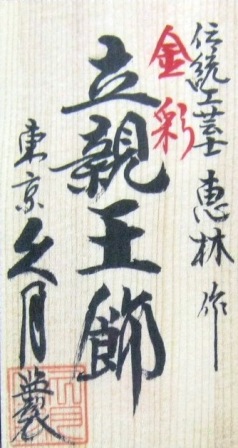 伝統工芸士 恵林作
金彩
立親王飾
東京久月製